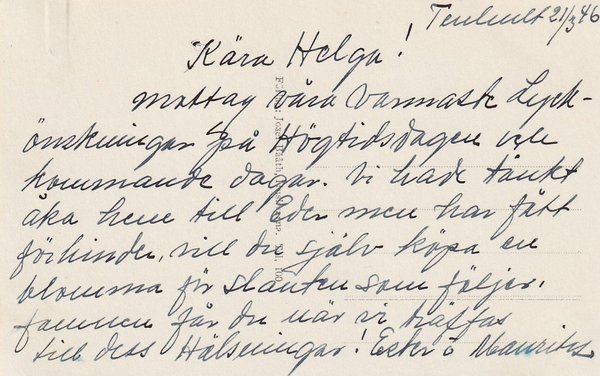 Tenhult 21/3 46
Kära Helga!
mottag våra varmaste Lyck-
önskningar på Högtidsdagen och
kommande dagar. Vi hade tänkt
åka hene till Eder men har fått
förhinder, vill du själv köpa en
blomma för slanten som följer.
famnen får du när vi träffas
till dess Hälsningar! Ester o Maurits.